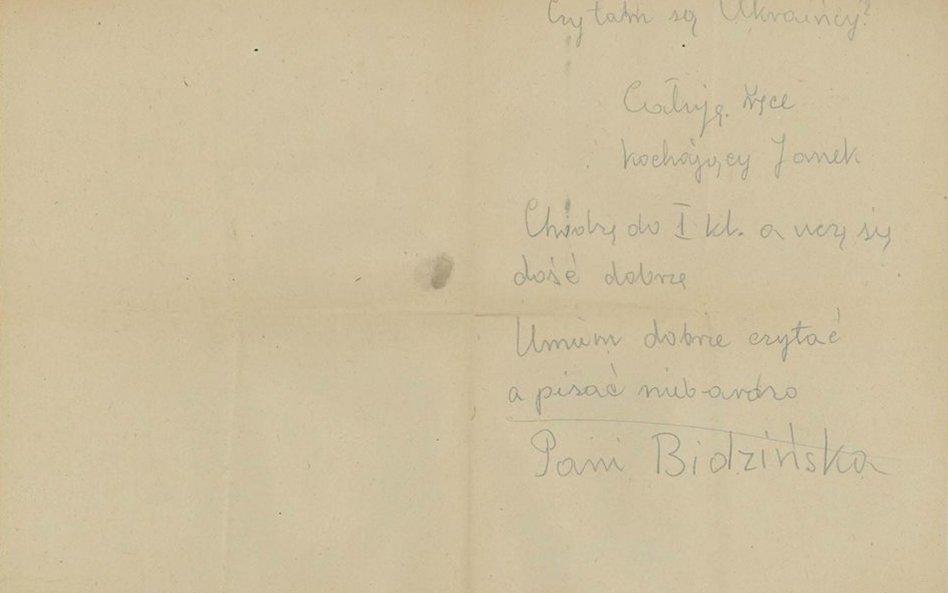 Czy tam są Ukraińcy?
Całuję ręce
kochający Janek
Chodzę do I kl. a uczę się
dość dobrzę
Umiem dobrze czytać
a pisać niebardzo
Pani Bidzińska